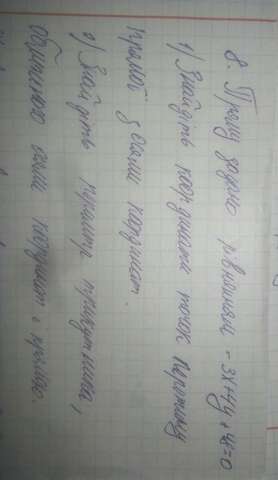 8. Пряму задано рівнянням -3x+4y+4=0
1) Знайдіть координати точок перетину
прямої з осями координат.
2) Знайдіть периметр трикутника,
обмеженого осями координат і прямою.